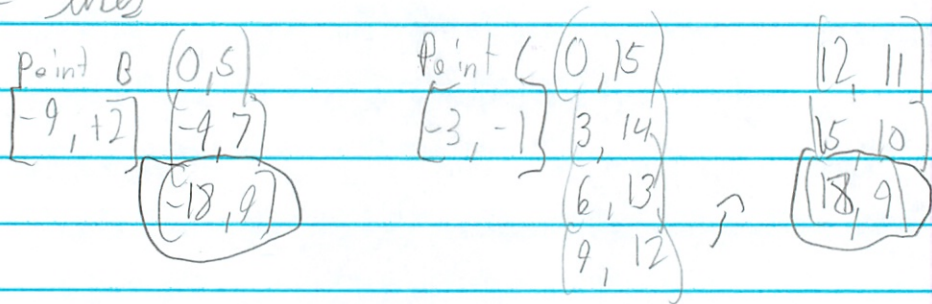 lines
Point B (0,5)
[-9, +2] (-9,7)
(-18,9)
Point C (0,15)
[-3, -1] (3, 14)
(6, 13)
(9, 12)
(12, 11)
(15, 10)
(18, 9)